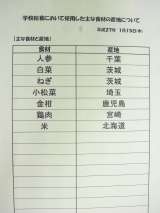 学校給食において使用した主な食材の産地について
平成27年 1月15日(木)
【主な食材と産地】
食材 産地
人参 千葉
白菜 茨城
ねぎ 茨城
小松菜 埼玉
金柑 鹿児島
鶏肉 宮崎
米 北海道